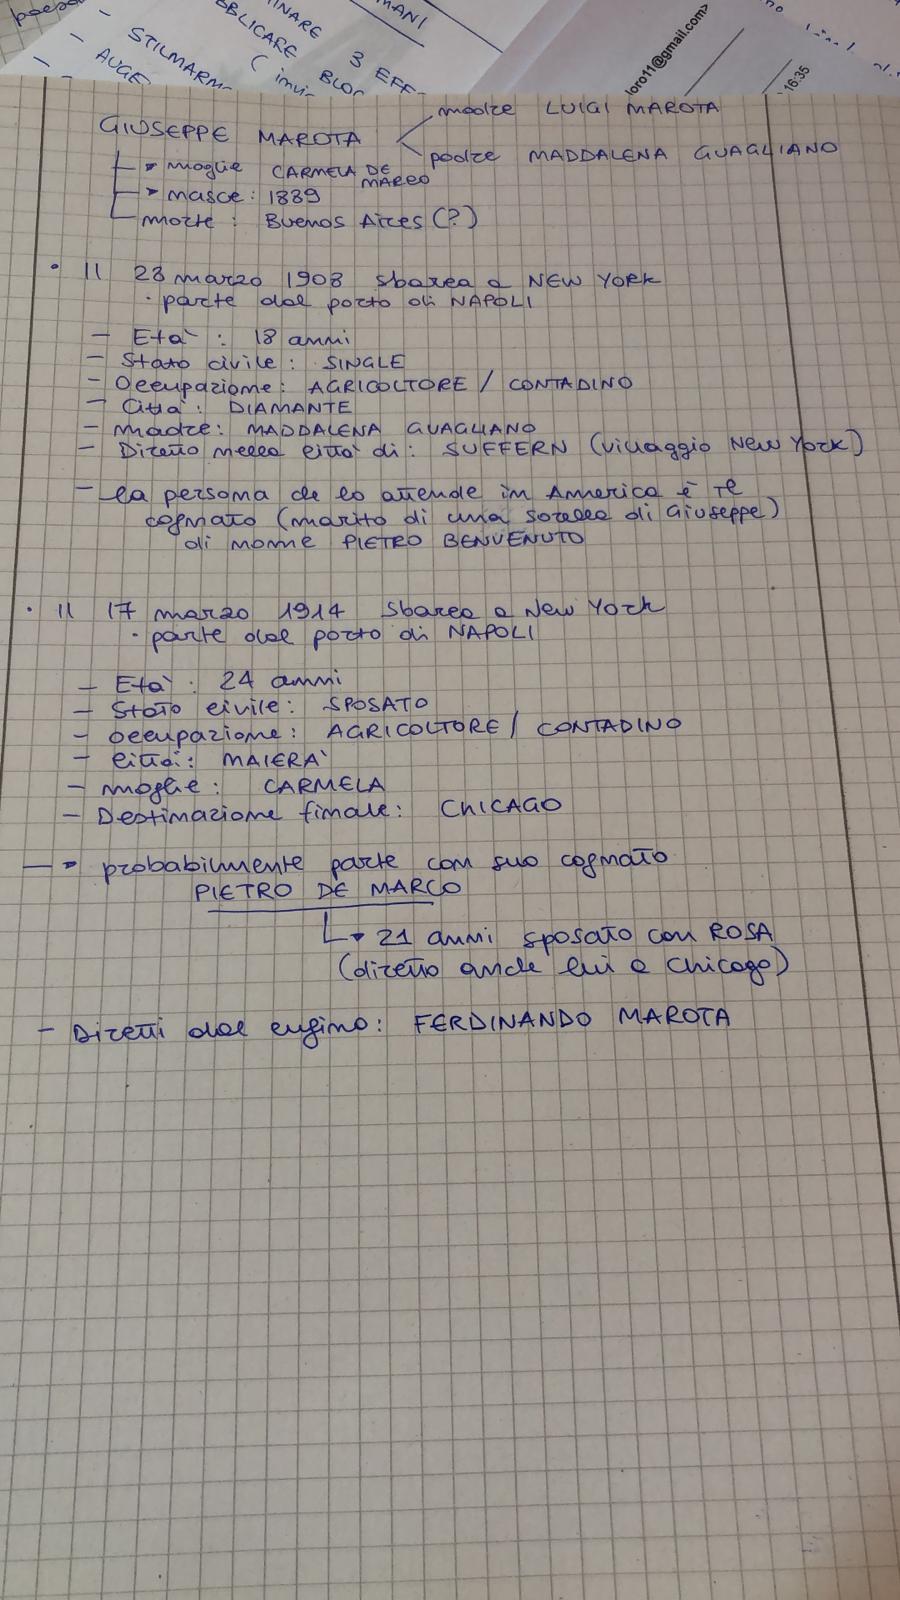 STILMARM
AUGE
INARE 3 EFF
BBLICARE BLOC
( invi
MANI
loro11@gmail.com>
16:35
madre LUIGI MAROTA
GIUSEPPE MAROTA
padre MADDALENA GUAGLIANO
moglie CARMELA DE MARCO
nasce: 1889
morte : Buenos Aires (?)
• Il 28 marzo 1908 sbarca a NEW YORK
• parte dal porto di NAPOLI
- Età : 18 anni
- Stato civile : SINGLE
- Occupazione: AGRICOLTORE / CONTADINO
- Città : DIAMANTE
- Madre: MADDALENA GUAGLIANO
- Diretto nella città di : SUFFERN (villaggio New York)
- la persona che lo attende in America è il
cognato (marito di una sorella di Giuseppe)
di nome PIETRO BENVENUTO
• Il 17 marzo 1914 sbarca a New York
• parte dal porto di NAPOLI
- Età : 24 anni
- Stato civile : SPOSATO
- occupazione : AGRICOLTORE / CONTADINO
- città : MAIERA'
- moglie : CARMELA
- Destinazione finale : CHICAGO
→ probabilmente parte con suo cognato
PIETRO DE MARCO
21 anni sposato con ROSA
(diretto anche lui a Chicago)
- Diretti dal cugino : FERDINANDO MAROTA